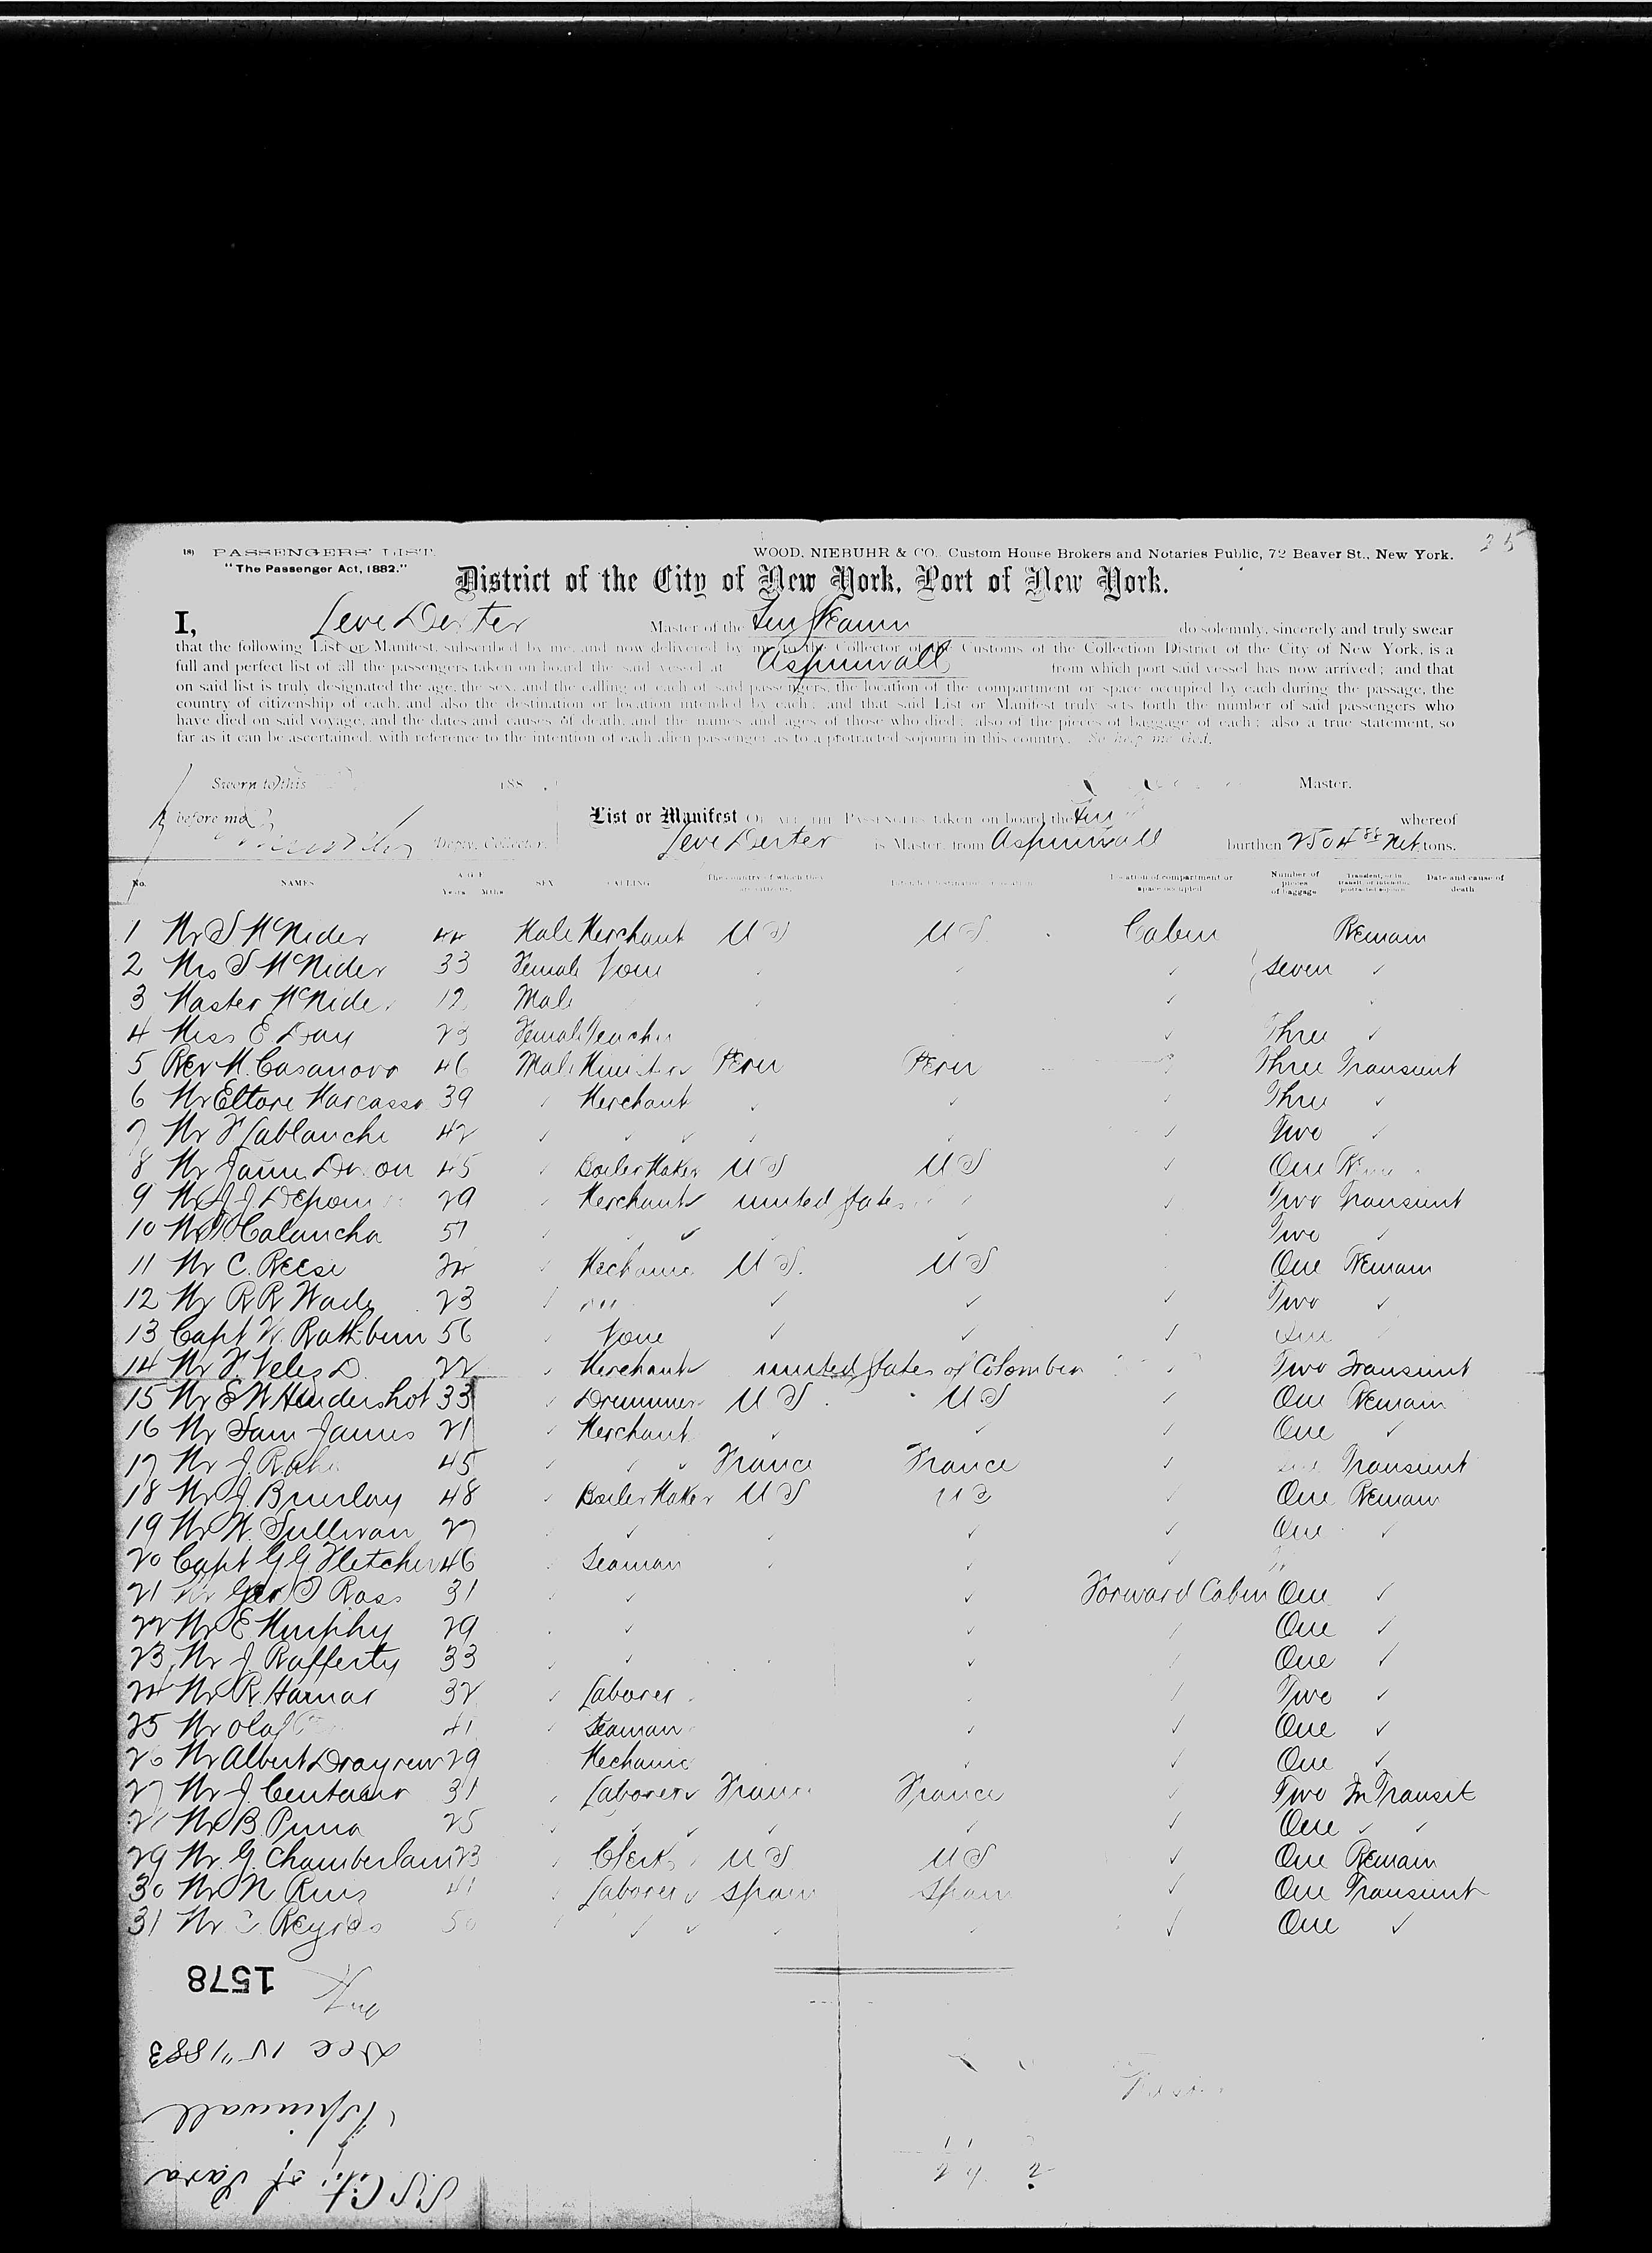 18) PASSENGERS' LIST.
WOOD, NIEBUHR & CO., Custom House Brokers and Notaries Public, 72 Beaver St., New York.
25
"The Passenger Act, 1882."
District of the City of New York, Port of New York.
I, Leve Dexter Master of the do solemnly, sincerely and truly swear
that the following List or Manifest, subscribed by me, and now delivered by me to the Collector of the Customs of the Collection District of the City of New York, is a
full and perfect list of all the passengers taken on board the said vessel at Aspinwall from which port said vessel has now arrived; and that
on said list is truly designated the age, the sex, and the calling of each of said passengers, the location of the compartment or space occupied by each during the passage, the
country of citizenship of each, and also the destination or location intended by each; and that said List or Manifest truly sets forth the number of said passengers who
have died on said voyage, and the dates and causes of death, and the names and ages of those who died; also of the pieces of baggage of each; also a true statement, so
far as it can be ascertained, with reference to the intention of each alien passenger as to a protracted sojourn in this country. So help me God.
Sworn to this 188 Master.
before me List or Manifest OF ALL THE PASSENGERS taken on board the whereof
Deputy Collector. Leve Dexter is Master, from Aspinwall burthen 2504 88 Net tons.
No. NAMES AGE Years Mths SEX CALLING The country of which they are citizens. Intended destination or location Location of compartment or space occupied Number of pieces of baggage Transient, or in transit, or intending protracted sojourn Date and cause of death
1 Mr S McNider 44 Male Merchant U S U S. Cabin Remain
2 Mrs S McNider 33 Female None ✓ Seven ✓
3 Master McNider 12 Male ✓
4 Miss E Day 23 Female Teacher ✓ Three ✓
5 Rev M. Casanova 46 Male Minister Peru Peru Three Transient
6 Mr Ettore Marcasso 39 ✓ Merchant ✓ ✓ ✓ Three ✓
7 Mr F Lablanche 42 ✓ ✓ ✓ ✓ ✓ ✓ Two ✓
8 Mr 45 ✓ Boiler Maker U S U S ✓ One
9 Mr J. J. 29 ✓ Merchant United States ✓ Two Transient
10 Mr Calancha 51 ✓ ✓ ✓ Two ✓
11 Mr C. Reese 24 ✓ Mechanic U S. U S One Remain
12 Mr R R Wade 23 ✓ ✓ ✓ Two ✓
13 Capt W. Rathbun 56 ✓ None ✓ ✓ ✓
14 Mr F Velez D. 22 ✓ Merchant United States of Colombia ✓ Two Transient
15 Mr E W Hendershot 33 ✓ Drummer U S. U.S ✓ One Remain
16 Mr Sam James 21 ✓ Merchant ✓ ✓ ✓ One ✓
17 Mr J. 45 ✓ ✓ ✓ France France ✓ Transient
18 Mr J. Brierlay 48 ✓ Boiler Maker U S U S ✓ One Remain
19 Mr W. Sullivan 27 ✓ ✓ ✓ One ✓
20 Capt G G Fletcher 46 Seaman ✓ ✓
21 Mr Geo Ross 31 ✓ ✓ Forward Cabin One ✓
22 Mr E Murphy 29 ✓ ✓ One ✓
23 Mr J. Rafferty 33 ✓ ✓ ✓ One ✓
24 Mr R. Hamar 32 ✓ Laborer Two ✓
25 Mr Olaf 41 ✓ Seaman ✓ ✓ One ✓
26 Mr Albert 29 Mechanic ✓ ✓ One ✓
27 Mr J. 31 ✓ Laborer France France ✓ Two In Transit
Mr B. Puna 25 ✓ ✓ ✓ ✓ ✓ ✓ One ✓ ✓
29 Mr. G. Chamberlain 23 ✓ Clerk U S U S ✓ One Remain
30 Mr N Ruis 41 ✓ Laborer Spain Spain ✓ One Transient
31 Mr 50 ✓ ✓ ✓ ✓ One ✓
1578
Dec 15" 1883
Aspinwall
S.S City of Para